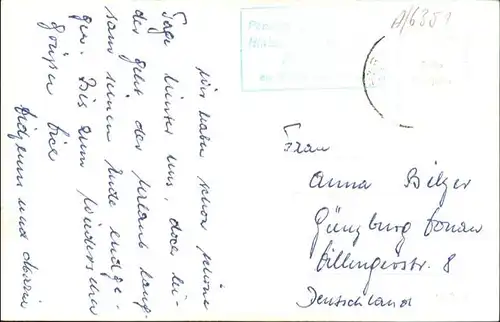 Wir haben schon schöne
Tage hinter uns, aber lei-
der geht der Urlaub lang-
sam seinem Ende entge-
gen. Bis zum Wiedersehen
grüßen Sie
und
A/6351
Frau
Anna Bilger
Günzburg Donau
Dillingerstr. 8
Deutschland